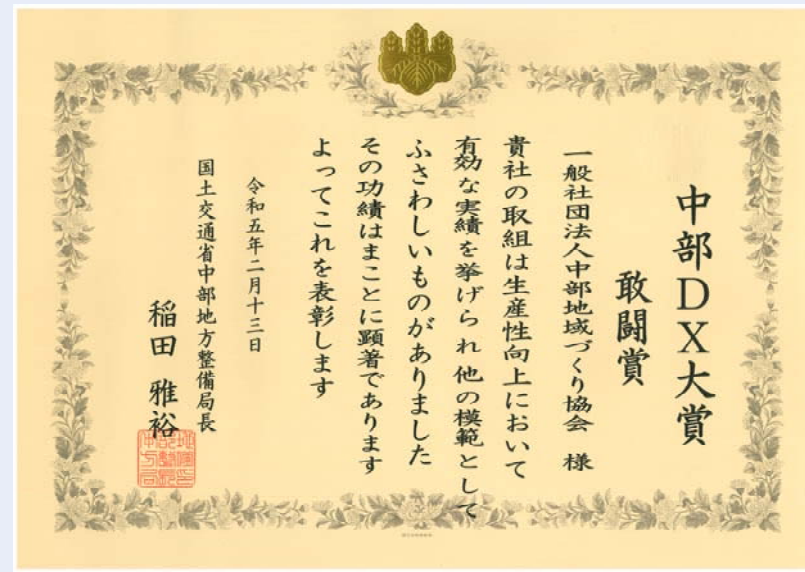 中部DX大賞
敢闘賞
一般社団法人中部地域づくり協会 様
貴社の取組は生産性向上において
有効な実績を挙げられ他の模範として
ふさわしいものがありました
その功績はまことに顕著であります
よってこれを表彰します
令和五年二月十三日
国土交通省中部地方整備局長
稲田 雅裕